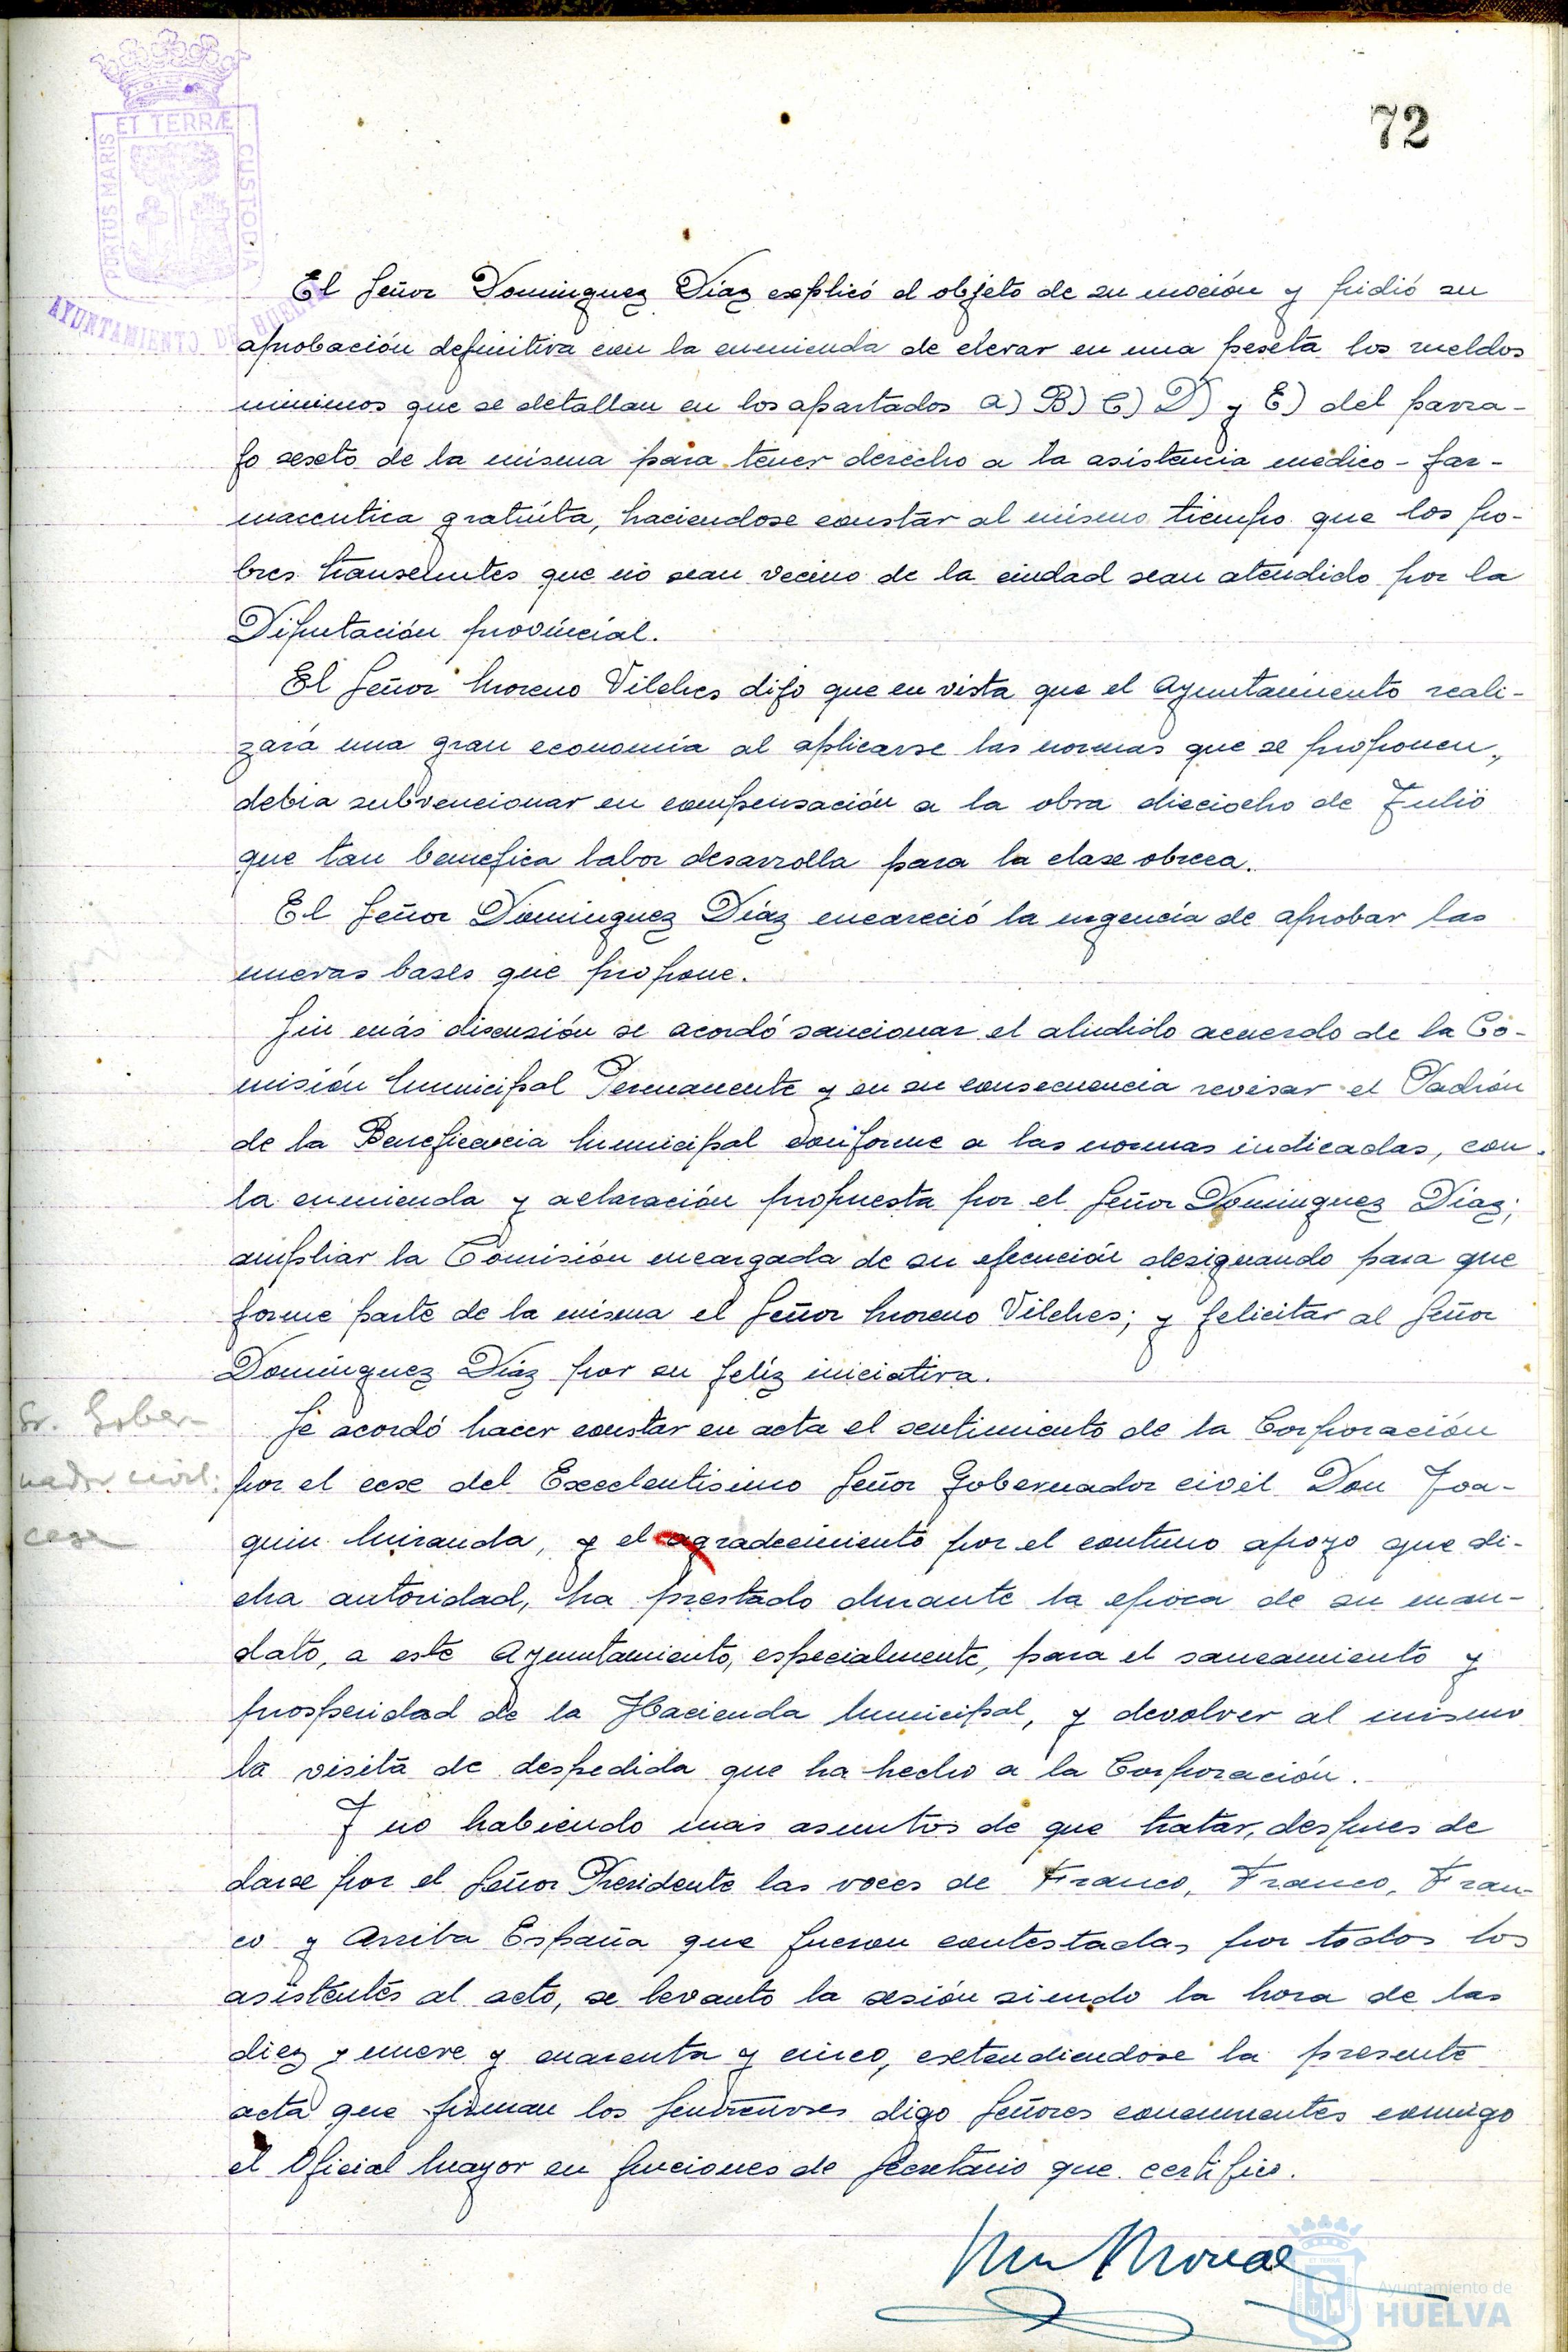 72
ET TERRÆ
PORTUS MARIS
CUSTODIA
AYUNTAMIENTO DE HUELVA
El Señor Dominguez Díaz explicó el objeto de su moción y pidió su
aprobación definitiva con la enmienda de elevar en una peseta los sueldos
minimos que se detallan en los apartados A) B) C) D) y E) del parra-
fo sexto de la misma para tener derecho a la asistencia medico-far-
maceutica gratuíta, haciendose constar al mismo tiempo que los po-
bres transeuntes que no sean vecino de la ciudad sean atendido por la
Diputación provincial.
El Señor Moreno Vilches dijo que en vista que el Ayuntamiento reali-
zará una gran economía al aplicarse las normas que se proponen,
debia subvencionar en compensación a la obra dieciocho de Julio
que tan benefica labor desarrolla para la clase obrera.
El Señor Dominguez Díaz encareció la urgencia de aprobar las
nuevas bases que propone.
Sin más discusión se acordó sancionar el aludido acuerdo de la Co-
misión Municipal Permanente y en su consecuencia revisar el Padrón
de la Beneficencia Municipal conforme a las normas indicadas, con
la enmienda y aclaración propuesta por el Señor Dominguez Díaz;
ampliar la Comisión encargada de su ejecución designando para que
forme parte de la misma el Señor Moreno Vilches; y felicitar al Señor
Dominguez Díaz por su felíz iniciativa.
Sr. Gober-
nador civil.
cese
Se acordó hacer constar en acta el sentimiento de la Corporación
por el cese del Excelentisimo Señor Gobernador civil Don Joa-
quin Miranda, y el agradecimiento por el contino apoyo que di-
cha autoridad, ha prestado durante la epoca de su man-
dato, a este Ayuntamiento, especialmente, para el saneamiento y
prosperidad de la Hacienda Municipal, y devolver al mismo
la visita de despedida que ha hecho a la Corporación.
Y no habiendo mas asuntos de que tratar, despues de
darse por el Señor Presidente las voces de Franco, Franco, Fran-
co y Arriba España que fueron contestadas por todos los
asistentes al acto, se levanto la sesión siendo la hora de las
diez y nueve y cuarenta y cinco, extendiendose la presente
acta que firman los digo Señores concurrentes conmigo
el Oficial Mayor en funciones de Secretario que certifico.
Ayuntamiento de
HUELVA